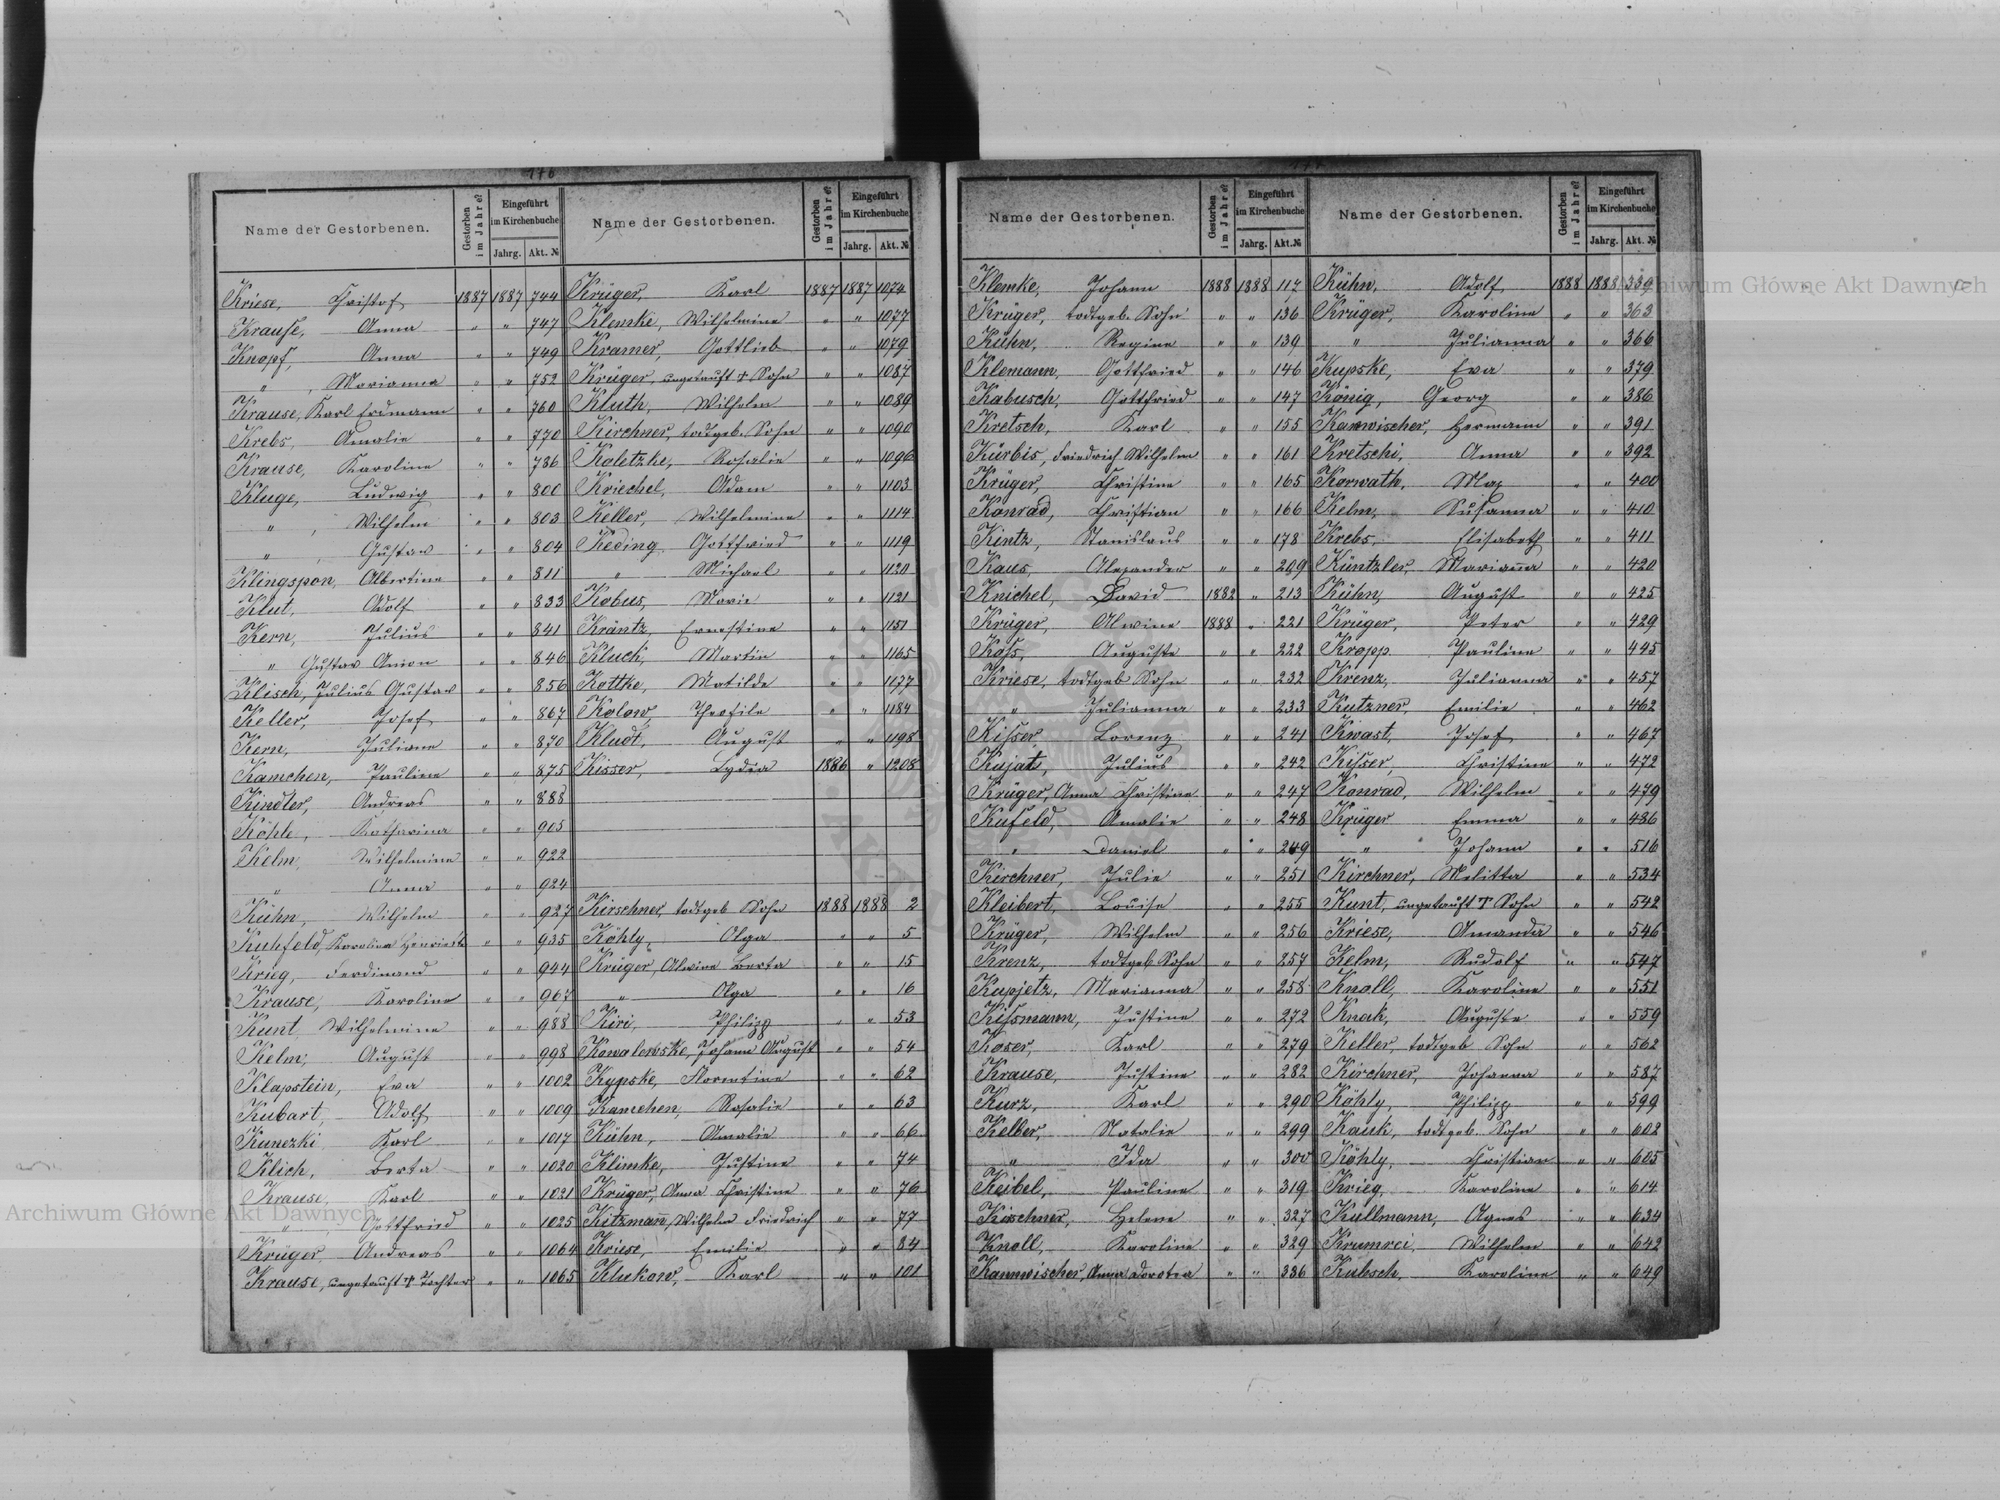 176
Name der Gestorbenen.
Gestorben im Jahre
Eingeführt im Kirchenbuche
Jahrg. Akt. №
Kriese, Christof 1887 1887 744
Krause, Anna " " 747
Knopf, Anna " " 749
" , Marianna " " 752
Krause, Karl Erdmann " " 760
Krebs, Amalie " " 770
Krause, Karoline " " 786
Kluge, Ludwig " " 800
" , Wilhelm " " 803
" Gustav " " 804
Klingspon, Albertine " " 811
Klut, Adolf " " 833
Kern, Julius " " 841
" Gustav Anion " " 846
Klisch, Julius Gustav " " 856
Keller, Josef " " 867
Kern, Juliane " " 870
Kamchen, Pauline " " 875
Kindler, Andreas " " 888
Köhle, Katharina " " 905
Kelm, Wilhelmine " " 922
" Anna " " 924
Kühn, Wilhelm " " 927
Kuhfeld, Karolina Henriette " " 935
Krieg, Ferdinand " " 944
Krause, Karoline " " 967
Kunt, Wilhelmine " " 988
Kelm, August " " 998
Klapstein, Eva " " 1002
Kubart, Adolf " " 1009
Kunezki Karl " " 1017
Klich, Berta " " 1020
Krause, Karl " " 1021
" , Gottfried " " 1025
Krüger, Andreas " " 1064
Krause, ungetauft † Tochter " " 1065
Name der Gestorbenen.
Gestorben im Jahre
Eingeführt im Kirchenbuche
Jahrg. Akt. №
Krüger, Karl 1887 1887 1074
Klemke, Wilhelmine " " 1077
Kramer, Gottlieb " " 1079
Krüger, ungetauft † Sohn " " 1087
Kluth, Wilhelm " " 1089
Kirchner, todtgeb. Sohn " " 1090
Koletzke, Rosalie " " 1096
Kriechel, Adam " " 1103
Keller, Wilhelmine " " 1114
Keding Gottfried " " 1119
" Michael " " 1120
Kobus, Marie " " 1121
Kräntz, Ernestine " " 1151
Kluck, Martin " " 1165
Kottke, Matilde " " 1177
Kolow, Theofile " " 1184
Kludt, August " " 1198
Kisser, Lydia 1886 " 1208
Kirschner, todtgeb Sohn 1888 1888 2
Köhly, Olga " " 5
Krüger, Alwine Berta " " 15
" Olga " " 16
Kiri, Philipp " " 53
Kowalewske, Johann August " " 54
Kypske, Florentine " " 62
Kamchen, Rosalie " " 63
Kühn, Amalie " " 66
Klimke, Justine " " 74
Krüger, Anna Christine " " 76
Kitzmann, Wilhelm Friedrich " " 77
Kriese, Emilie " " 84
Klukow, Karl " " 101
Name der Gestorbenen.
Gestorben im Jahre
Eingeführt im Kirchenbuche
Jahrg. Akt. №
Klemke, Johann 1888 1888 117
Krüger, todtgeb. Sohn " " 136
Kühn, Regine " " 139
Klemann, Gottfried " " 146
Kabusch, Gottfried " " 147
Kretsch, Karl " " 155
Kürbis, Friedrich Wilhelm " " 161
Krüger, Christine " " 165
Konrad, Christian " " 166
Kintz, Stanislaus " " 178
Kaus, Alexander " " 209
Knichel, David 1882 " 213
Krüger, Alwine 1888 " 221
Koss, Auguste " " 222
Kriese, todtgeb Sohn " " 232
" Julianna " " 233
Kisser Lorenz " " 241
Kujat, Julius " " 242
Krüger, Anna Christine " " 247
Kufeld, Amalie " " 248
" Daniel " " 249
Kirchner, Julie " " 251
Kleibert, Louise " " 255
Krüger, Wilhelm " " 256
Krenz, todtgeb Sohn " " 257
Kupjetz, Marianna " " 258
Kissmann, Justine " " 272
Koser, Karl " " 279
Krause, Justine " " 282
Kurz, Karl " " 290
Kelber, Natalie " " 299
" Ida " " 300
Keibel, Pauline " " 319
Kirschner, Helene " " 327
Knoll, Karoline " " 329
Kannwischer, Anna Dorotea " " 336
Name der Gestorbenen.
Gestorben im Jahre
Eingeführt im Kirchenbuche
Jahrg. Akt. №
Kühn, Adolf 1888 1888 339
Krüger, Karoline " " 363
" Julianna " " 366
Kupske, Eva " " 379
König, Georg " " 386
Kanwischer, Hermann " " 391
Kretschi, Anna " " 392
Karwath, Max " " 400
Kelm, Susanna " " 410
Krebs, Elisabeth " " 411
Küntzler, Marianna " " 420
Kühn, August " " 425
Krüger, Peter " " 429
Kropp Pauline " " 445
Krenz, Julianna " " 457
Kutzner, Emilie " " 462
Kwast, Josef " " 467
Kisser, Christine " " 472
Konrad, Wilhelm " " 479
Krüger Emma " " 486
" Johann " " 516
Kirchner, Melitta " " 534
Kunt, ungetauft † Sohn " " 542
Kriese, Amanda " " 546
Kelm, Rudolf " " 547
Knoll, Karoline " " 551
Knak, Auguste " " 559
Keller, todtgeb Sohn " " 562
Kirchner, Johanna " " 587
Köhly, Philipp " " 599
Kauk, todtgeb. Sohn " " 602
Köhly, Christian " " 605
Krieg, Karoline " " 614
Kullmann, Agnes " " 634
Krumrei, Wilhelm " " 642
Kubsch, Karoline " " 649
Archiwum Główne Akt Dawnych
Archiwum Główne Akt Dawnych